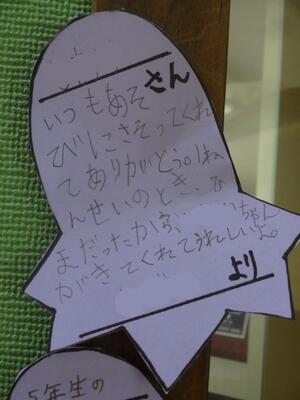 さん
いつもあそ
びにさそってくれ
てありがとう。1ね
んせいのとき、ひ
まだったから、ちゃん
がきてくれてうれしいよ。
より
5年生の